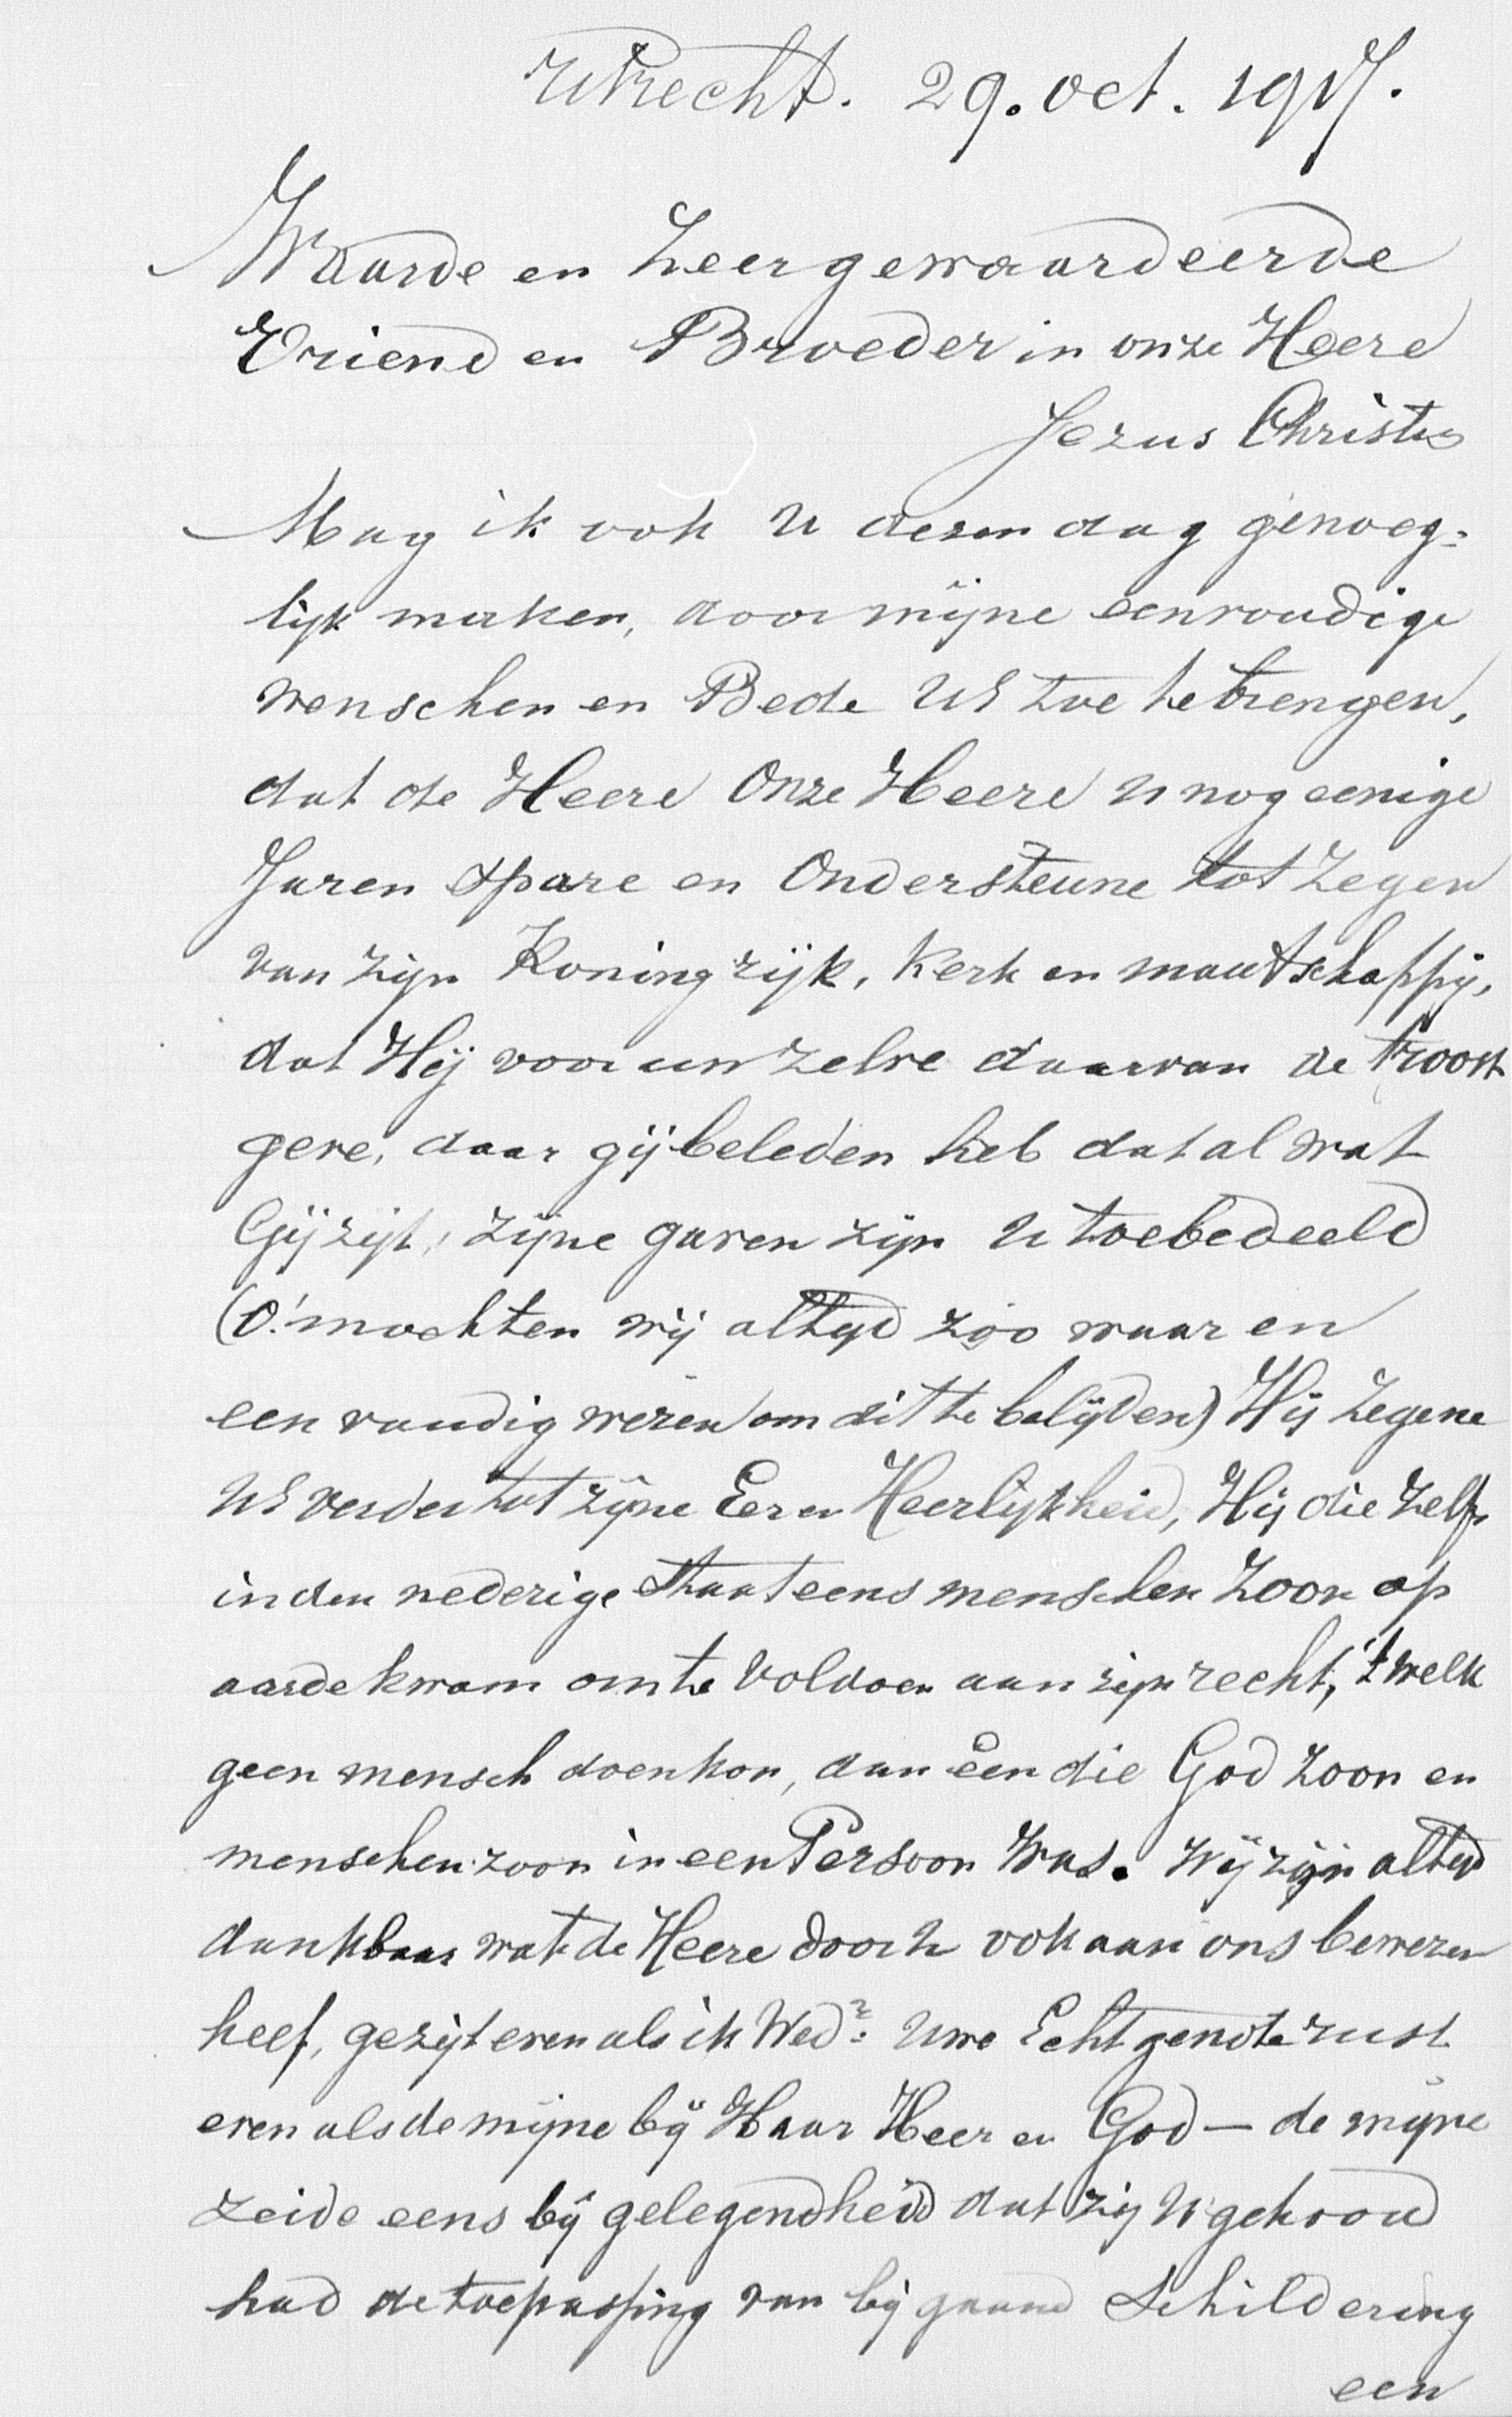 Utrecht. 29. Oct. 1917.
Waarde en Zeergewaardeerde
Vriend en Broeder in onze Heere
Jezus Christus
Mag ik ook U dezen dag genoeg=
lijk maken, door mijne eenvoudige
wenschen en Bede UE toe te brengen,
dat de Heere Onze Heere U nog eenige
Jaren spare en Ondersteune tot Zegen
van zijn Koningrijk, Kerk en maatschappij,
dat Hij voor uw zelve daarvan de troost
geve, daar gij beleden heb dat al wat
Gij zijt, zijne gaven zijn U toebedeeld
(O! mochten wij altijd zoo waar en
een voudig wezen om dit te belijden) Hij Zegene
UE verder tot zijne Eer en Heerlijkheid, Hij die Zelf
in den nederige Staat eens menschen Zoon op
aarde kwam om te Voldoen aan zijn recht, 't welk
geen mensch doen kon, dan Een die God Zoon en
menschen zoon in een Persoon Was. Wij zijn altijd
dankbaar wat de Heere door U ook aan ons bewezen
heef, ge zijt even als ik Wed=r Uwe Echtgenote rust
even als de mijne bij Haar Heer en God — de mijne
zeide eens bij gelegendheid dat zij U gehoord
had de toepassing van bij gaand Schildering
een